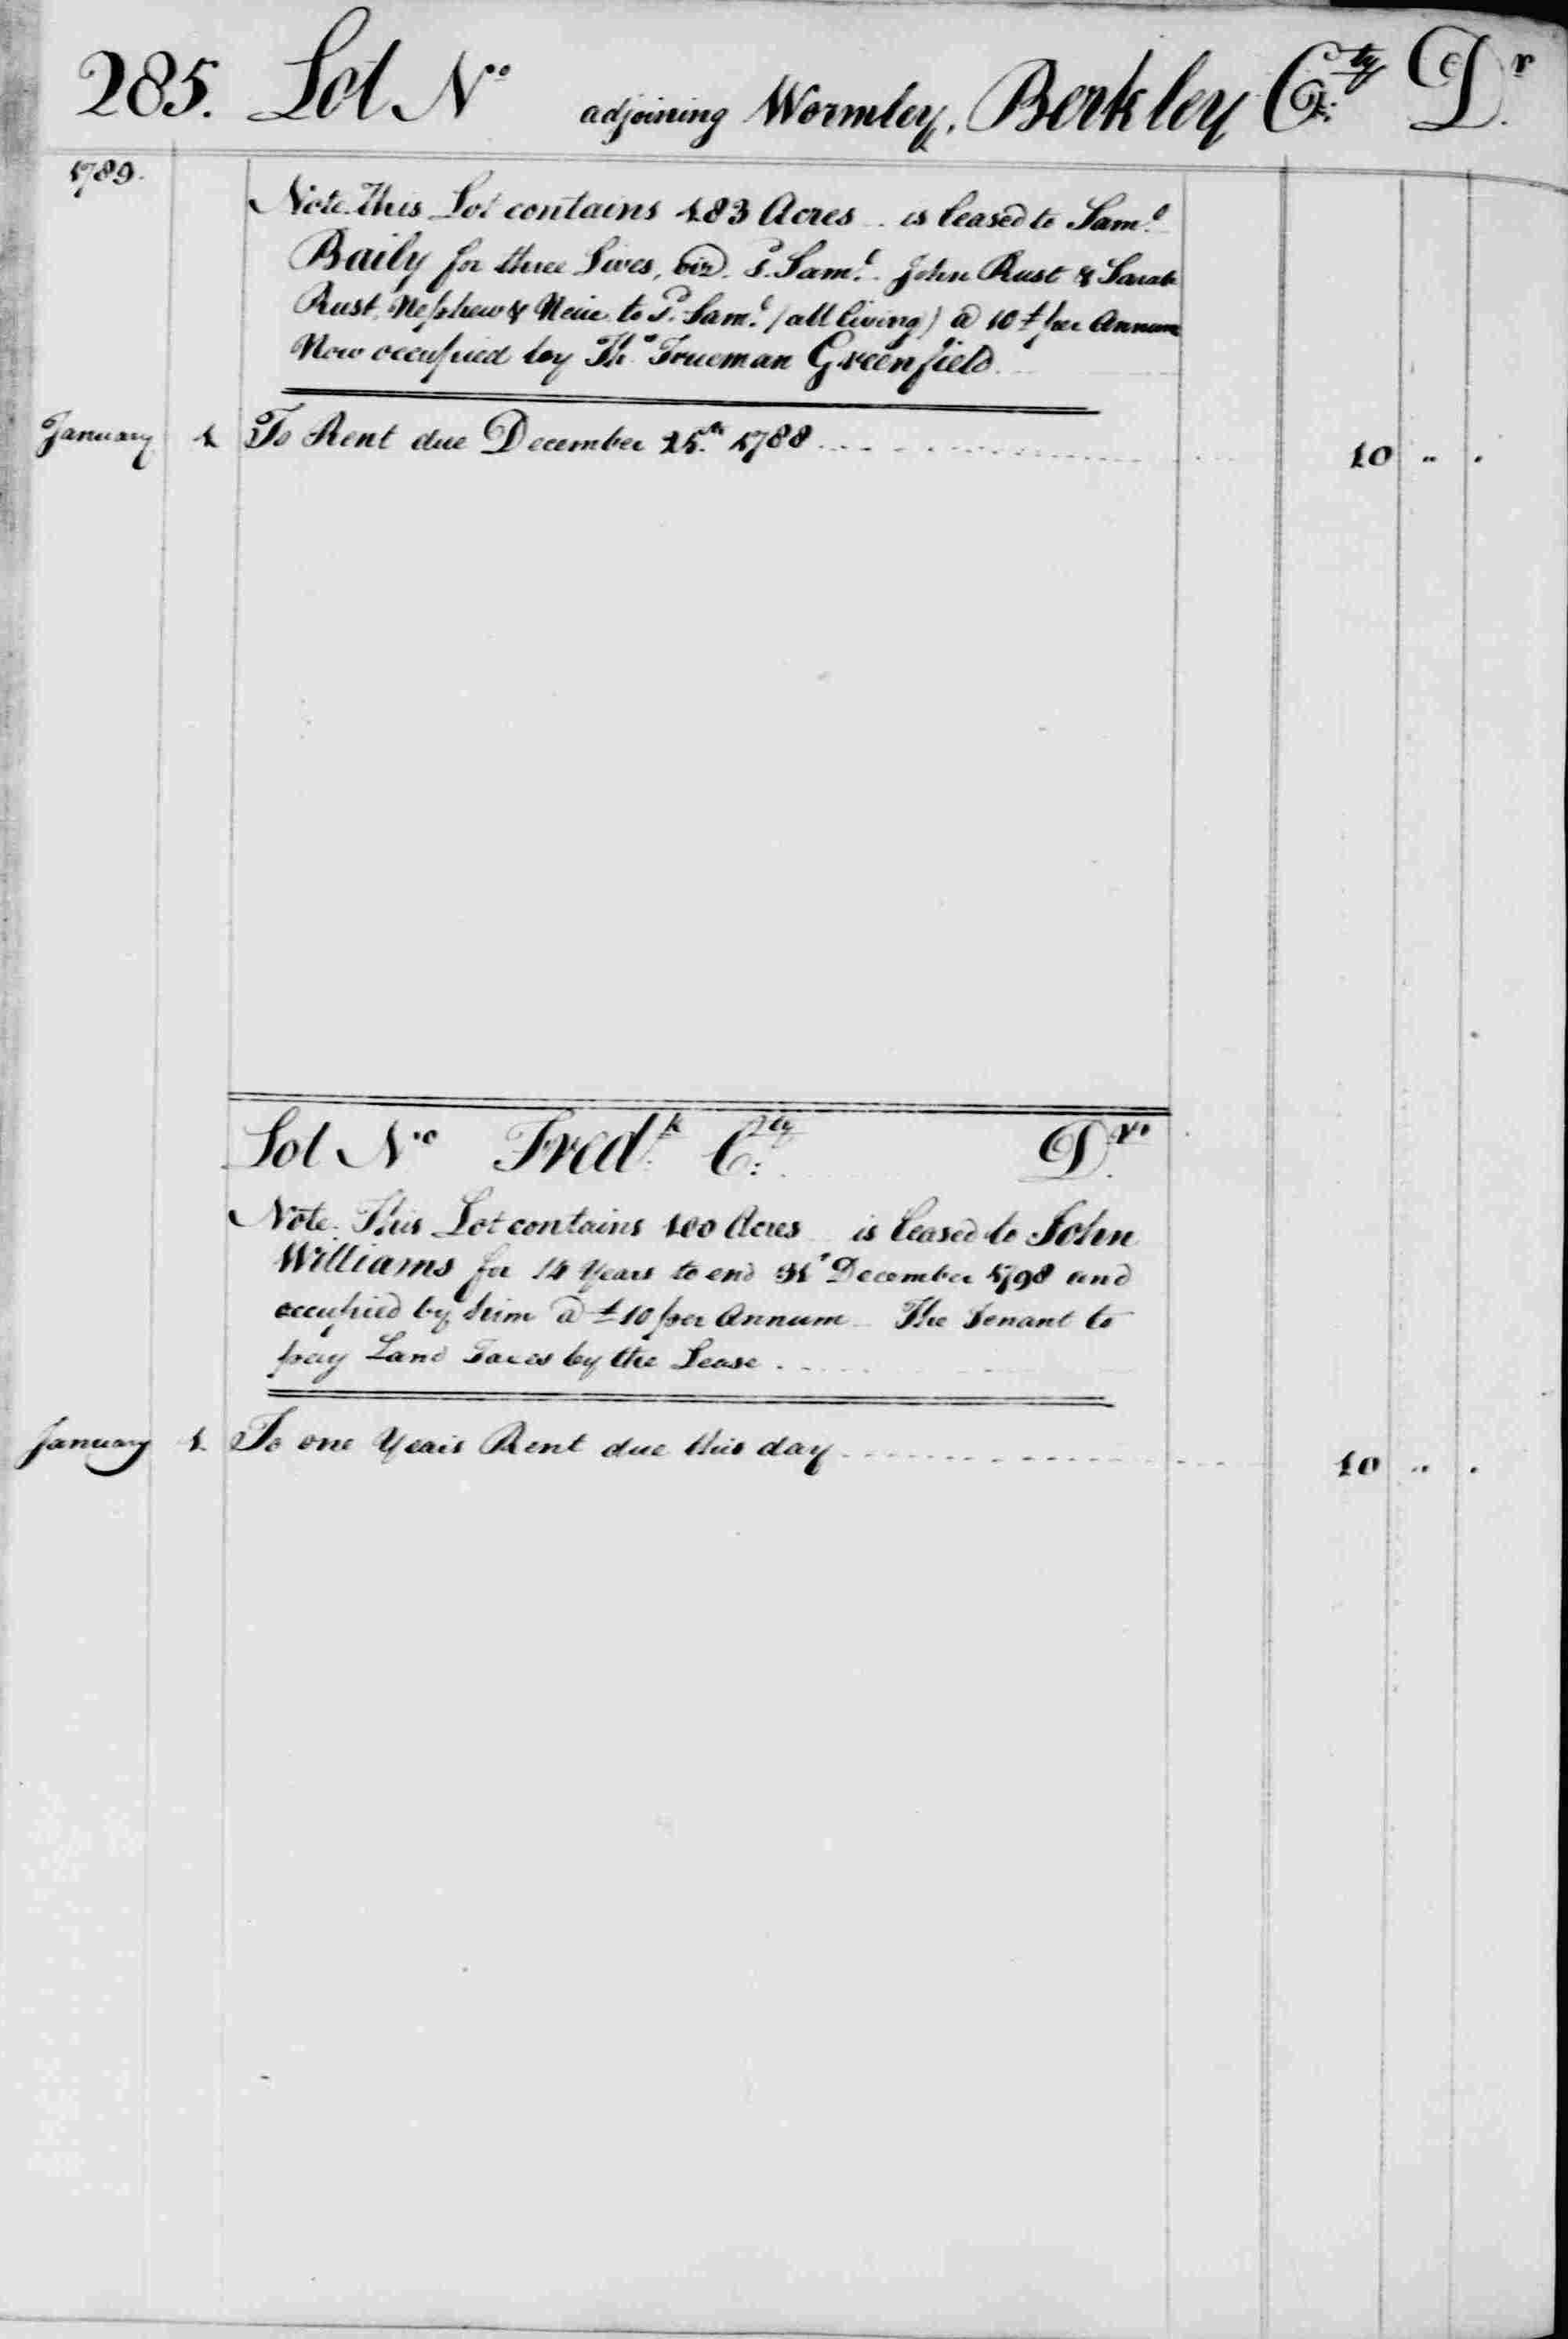 285. Lot No adjoining Wormley, Berkley Cty Dr
1789.
Note. This Lot contains 183 Acres .. is leased to Saml
Baily for three Lives, viz. sd. Saml. John Rust & Sarah
Rust, Nephew & Neice to sd. Saml. (all living) @ 10£ per Annum
Now occupied by Tho. Trueman Greenfield.
January 1 To Rent due December 25th 1788 10 .. .
Lot No Fredk Cty Dr.
Note. This Lot contains 100 Acres is leased to John
Williams for 14 Years to end 31st December 1798 and
occupied by him @ £10 per Annum. The Tenant to
pay Land Taxes by the Lease.
January 1 To one Years Rent due this day 10 .. .